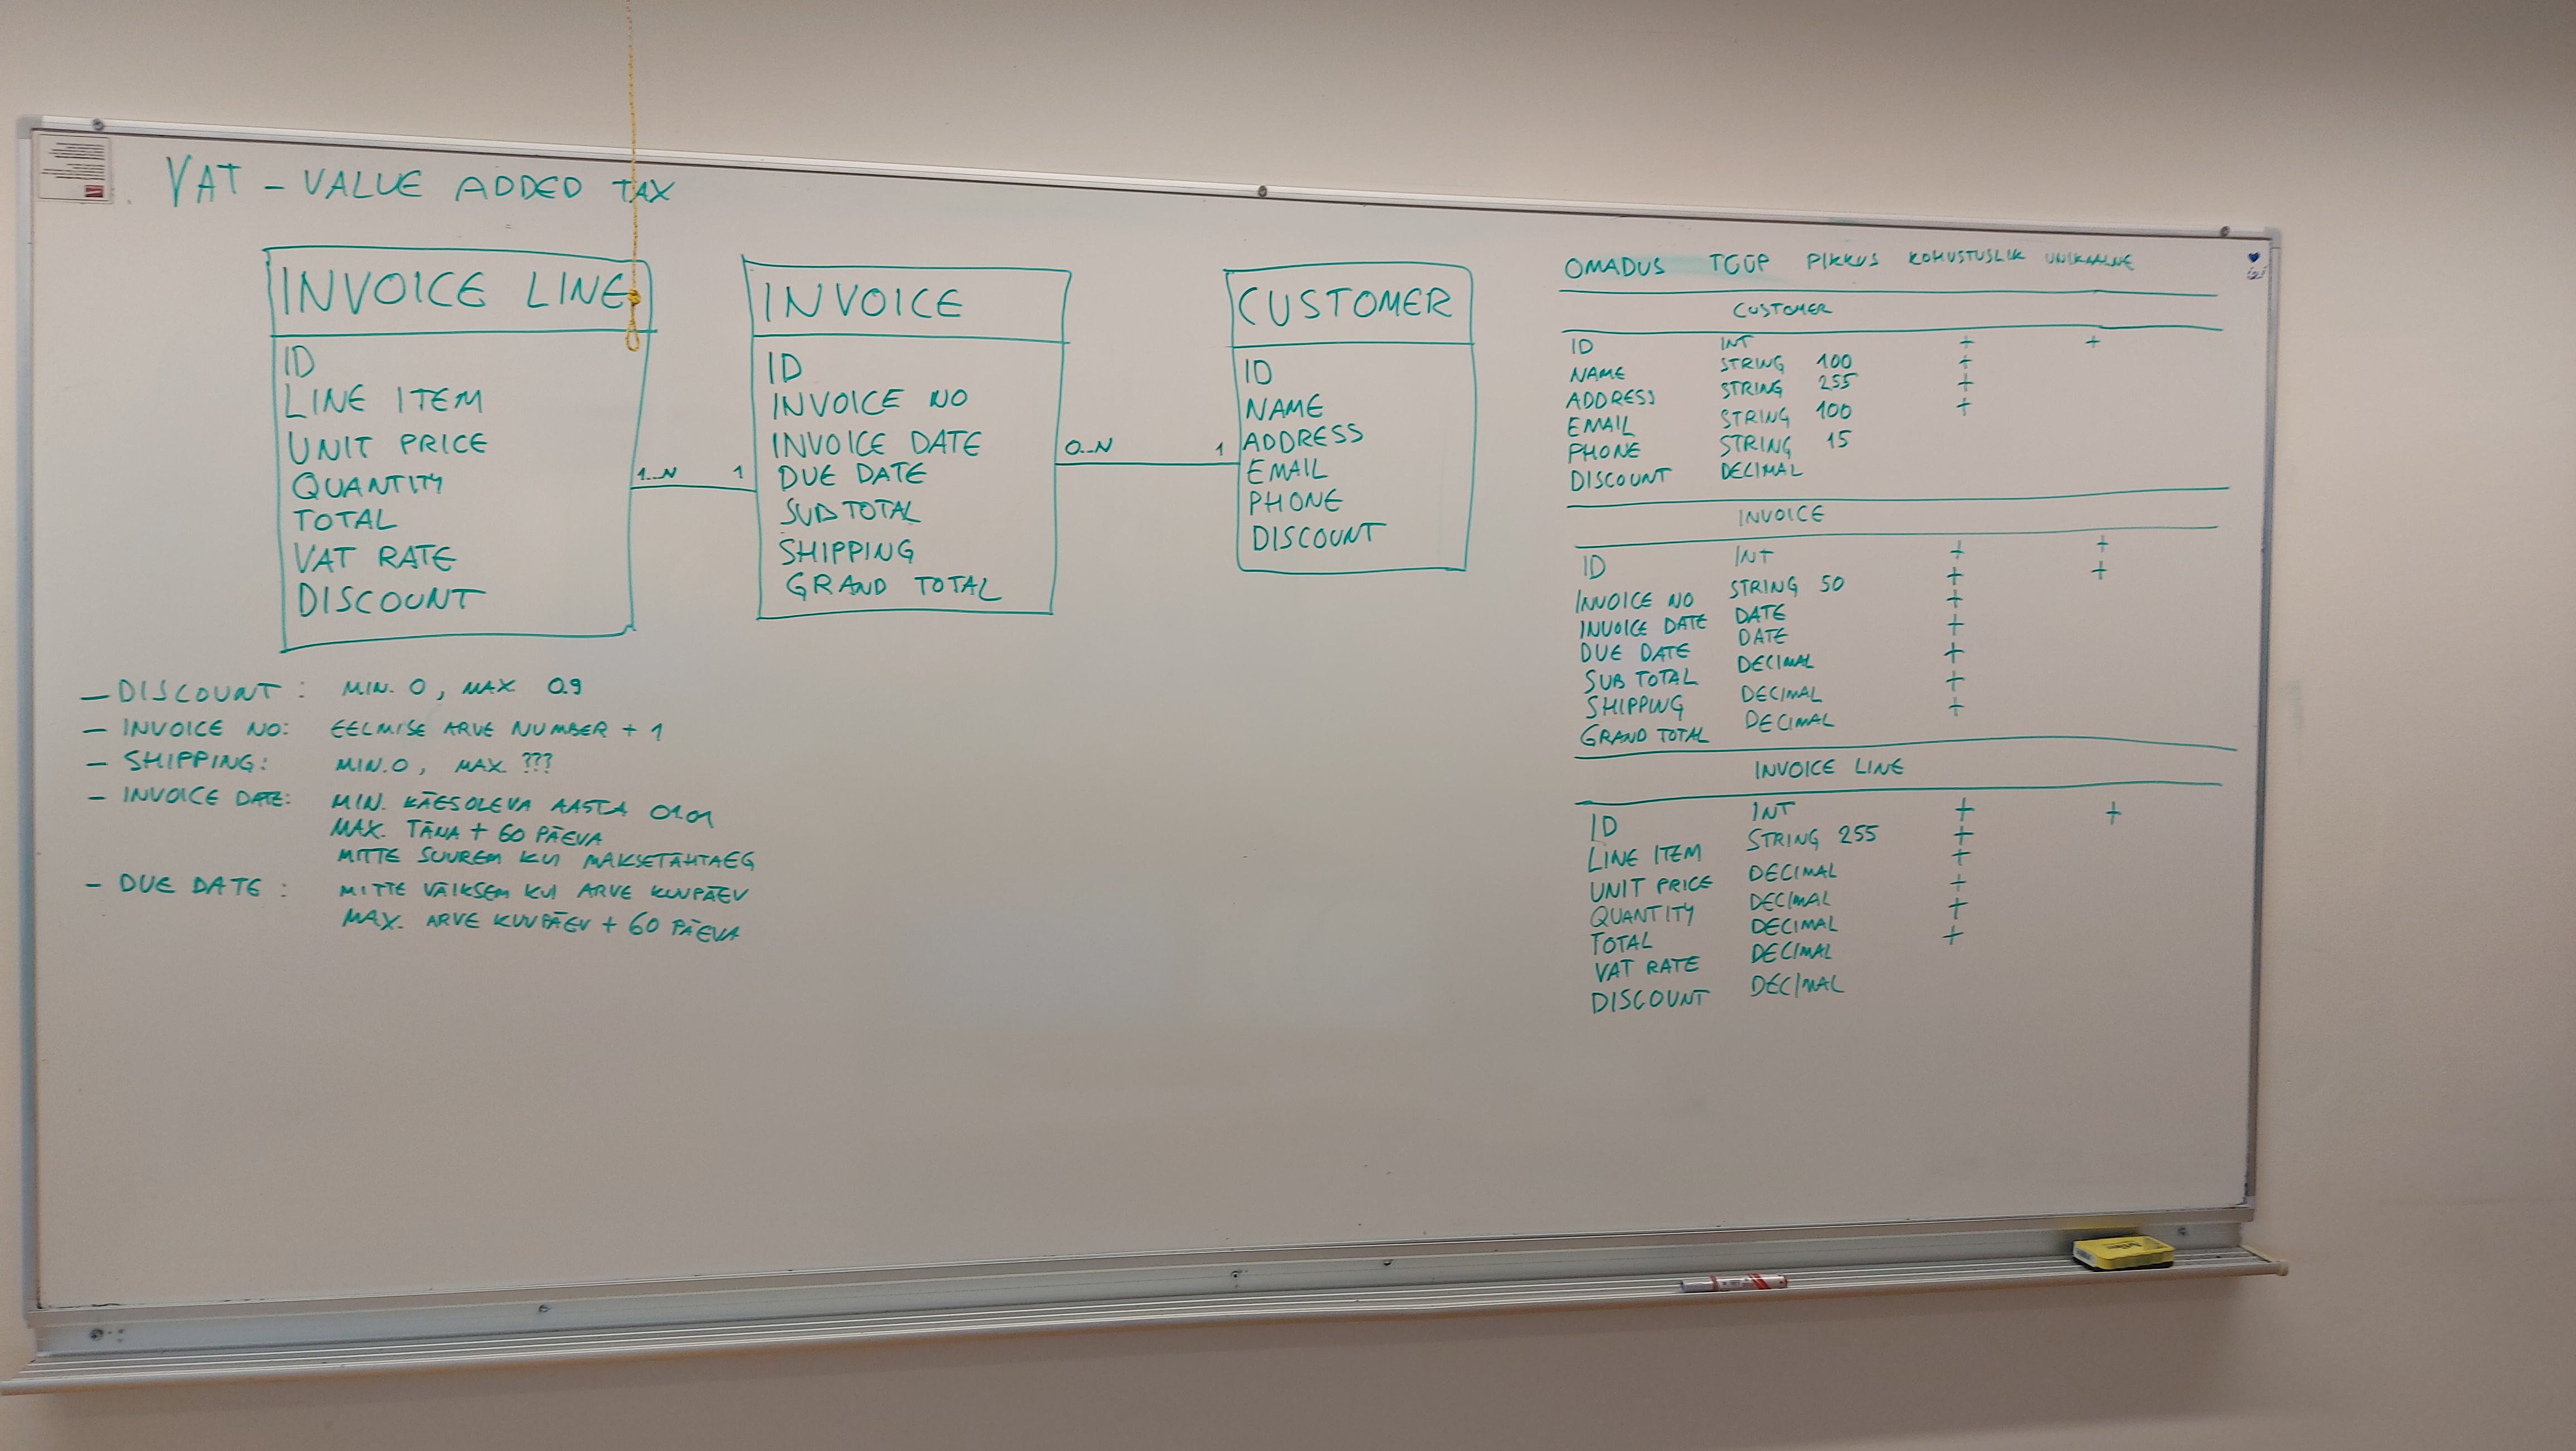 VAT - VALUE ADDED TAX
INVOICE LINE
ID
LINE ITEM
UNIT PRICE
QUANTITY
TOTAL
VAT RATE
DISCOUNT
1..N 1
INVOICE
ID
INVOICE NO
INVOICE DATE
DUE DATE
SUBTOTAL
SHIPPING
GRAND TOTAL
0..N 1
CUSTOMER
ID
NAME
ADDRESS
EMAIL
PHONE
DISCOUNT
- DISCOUNT: MIN. 0, MAX 0.9
- INVOICE NO: EELMISE ARVE NUMBER + 1
- SHIPPING: MIN. 0, MAX. ???
- INVOICE DATE: MIN. KÄESOLEVA AASTA 01.01
MAX. TÄNA + 60 PÄEVA
MITTE SUUREM KUI MAKSETÄHTAEG
- DUE DATE: MITTE VÄIKSEM KUI ARVE KUUPÄEV
MAX. ARVE KUUPÄEV + 60 PÄEVA
OMADUS TÜÜP PIKKUS KOHUSTUSLIK UNIKAALNE
CUSTOMER
ID INT + +
NAME STRING 100 +
ADDRESS STRING 255 +
EMAIL STRING 100 +
PHONE STRING 15
DISCOUNT DECIMAL
INVOICE
ID INT + +
INVOICE NO STRING 50 + +
INVOICE DATE DATE +
DUE DATE DATE +
SUB TOTAL DECIMAL +
SHIPPING DECIMAL +
GRAND TOTAL DECIMAL +
INVOICE LINE
ID INT + +
LINE ITEM STRING 255 +
UNIT PRICE DECIMAL +
QUANTITY DECIMAL +
TOTAL DECIMAL +
VAT RATE DECIMAL +
DISCOUNT DECIMAL